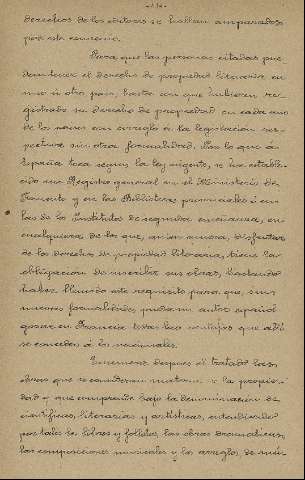 derechos de los editores se hallan amparados
por este convenio.
Para que las personas citadas pue-
dan tener el derecho de propiedad literaria en
uno ú otro pais, basta con que hubieren re-
gistrado su derecho de propiedad en cada uno
de los paises con arreglo á la legislacion res-
pectiva sin otra formalidad. Por lo que á
España toca segun la ley vigente, se ha estable-
cido un Registro general en el Ministerio de
Fomento y en las Bibliotecas provinciales ó en
las de los Institutos de segunda enseñanza, en
cualquiera de los que, quien quiera, disfrutar
de los derechos de propiedad literaria, tiene la
obligacion de inscribir sus obras, bastando
haber llenado este requisito para que, sin
nuevas formalidades puedan autor español
gozar en Francia todas las ventajas que alli
se conceden á los nacionales.
Enumera despues el tratado las
obras que se consideran materia de la propie-
dad y que comprende bajo la denominacion de
cientificas, literarias y artisticas, entendiendo
por tales los libros y folletos, las obras dramaticas,
las composiciones musicales y los arreglos de mú-